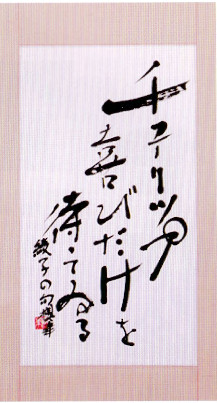 チユーリツプ
喜びだけを
持つてゐる
綾子の句